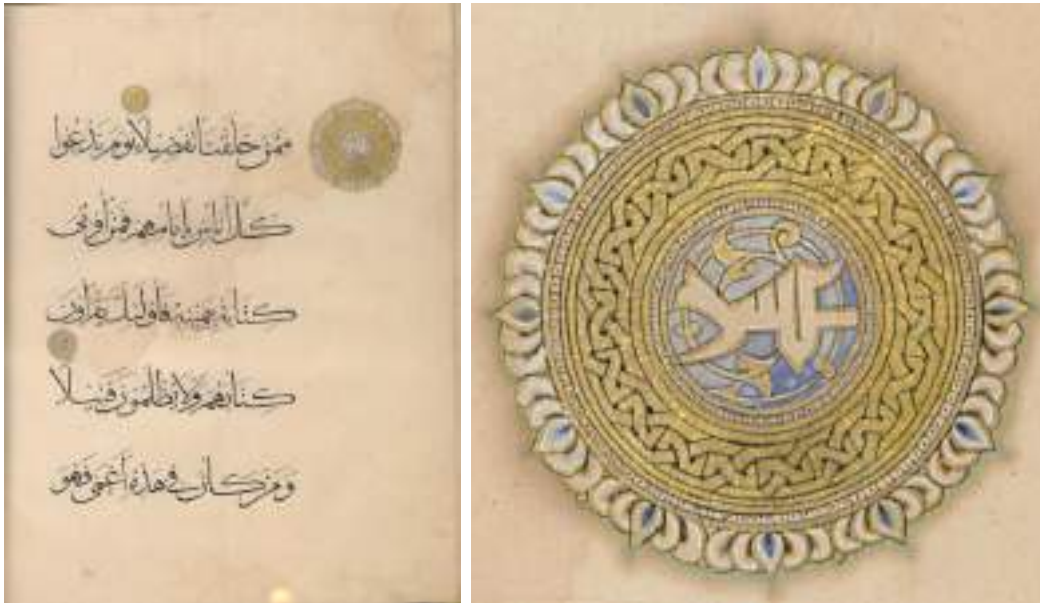 ممن خلقنا تفضيلا يوم ندعوا
كل أناس بإمامهم فمن أوتى
كتابه بيمينه فأولئك يقرءون
كتابهم ولا يظلمون فتيلا
ومن كان في هذه أعمى فهو